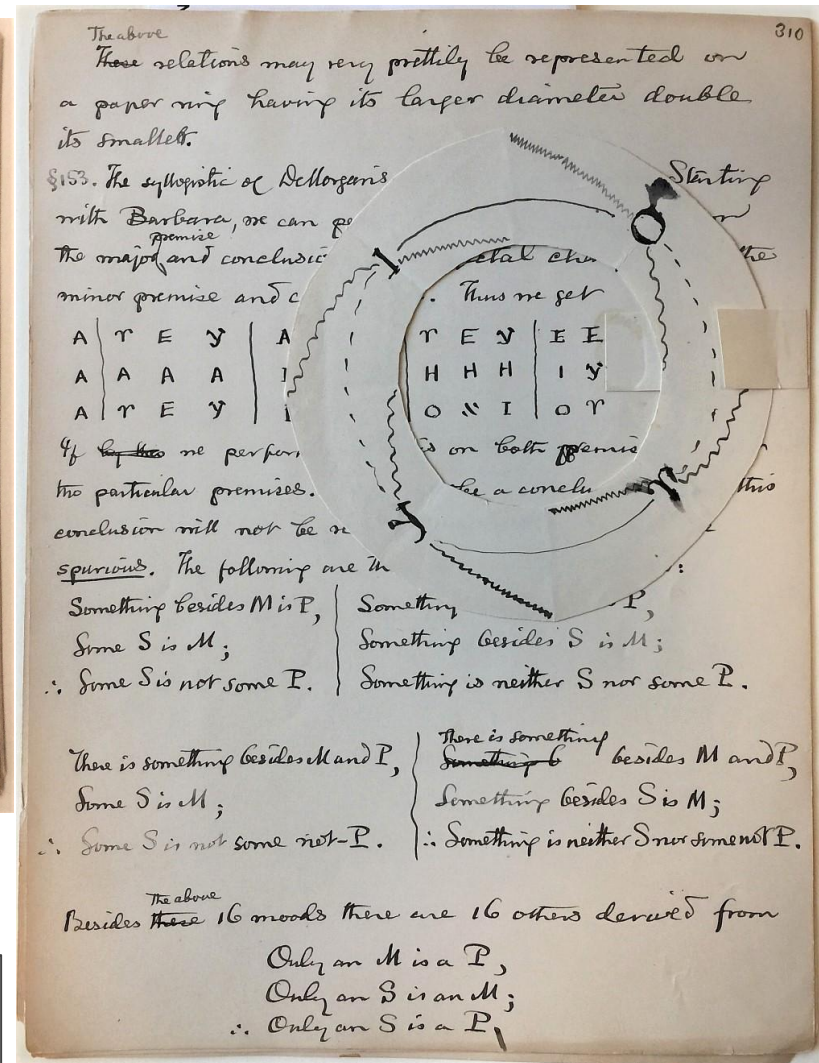 310
The above
These relations may very prettily be represented on
a paper ring having its larger diameter double
its smallest.
§153. The syllogistic of DeMorgan's Starting
with Barbara, we can pe
premise
the major and conclusio the
minor premise and c . Thus we get
A | ϒ E y | A | ϒ E y | E E
A | A A A | I | H H H | I y
A | ϒ E y | O I | O ϒ
I O
If by this we perfor s on both premis
two particular premises. be a conclu this
conclusion will not be
spurious. The following are th :
Something besides M is P, | Something P,
Some S is M; | Something besides S is M;
∴ Some S is not some P. | Something is neither S nor some P.
There is something
There is something besides M and P, | Something b besides M and P,
Some S is M; | Something besides S is M;
∴ Some S is not some not-P. | ∴ Something is neither S nor some not P.
The above
Besides these 16 moods there are 16 others derived from
Only an M is a P,
Only an S is an M;
∴ Only an S is a P,